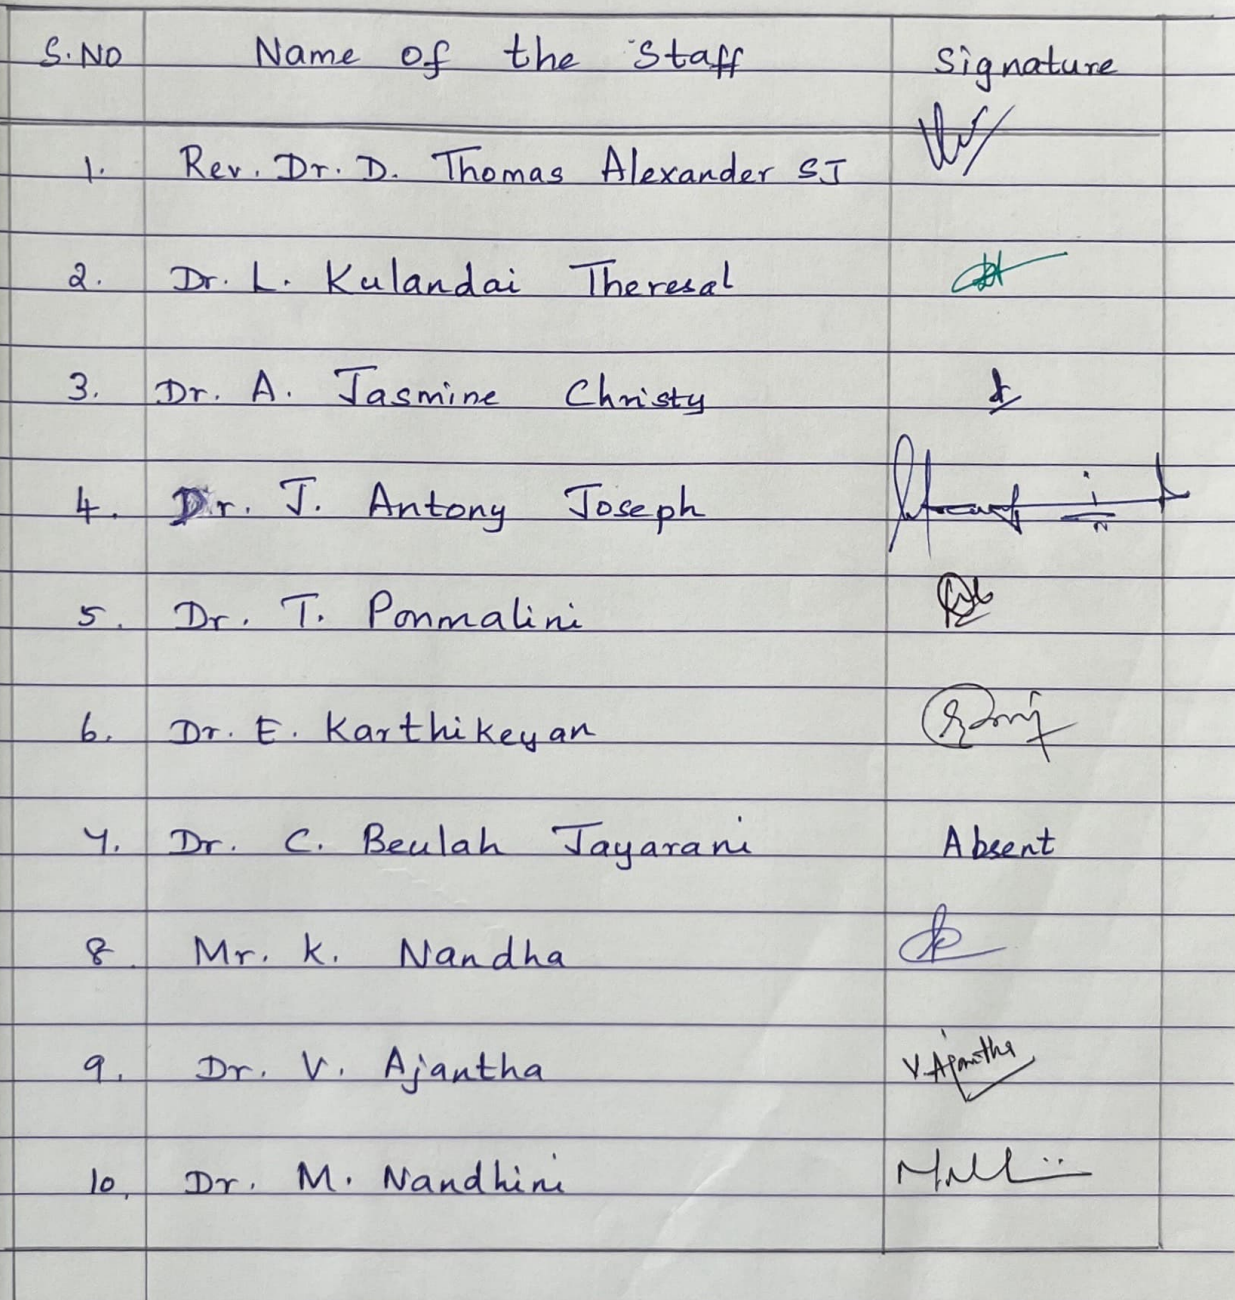 S.NO Name of the Staff Signature
1. Rev. Dr. D. Thomas Alexander SJ
2. Dr. L. Kulandai Theresal
3. Dr. A. Jasmine Christy
4. Dr. J. Antony Joseph
5. Dr. T. Ponmalini
6. Dr. E. Karthikeyan
7. Dr. C. Beulah Jayarani Absent
8 Mr. K. Nandha
9. Dr. V. Ajantha V. Ajantha
10. Dr. M. Nandhini